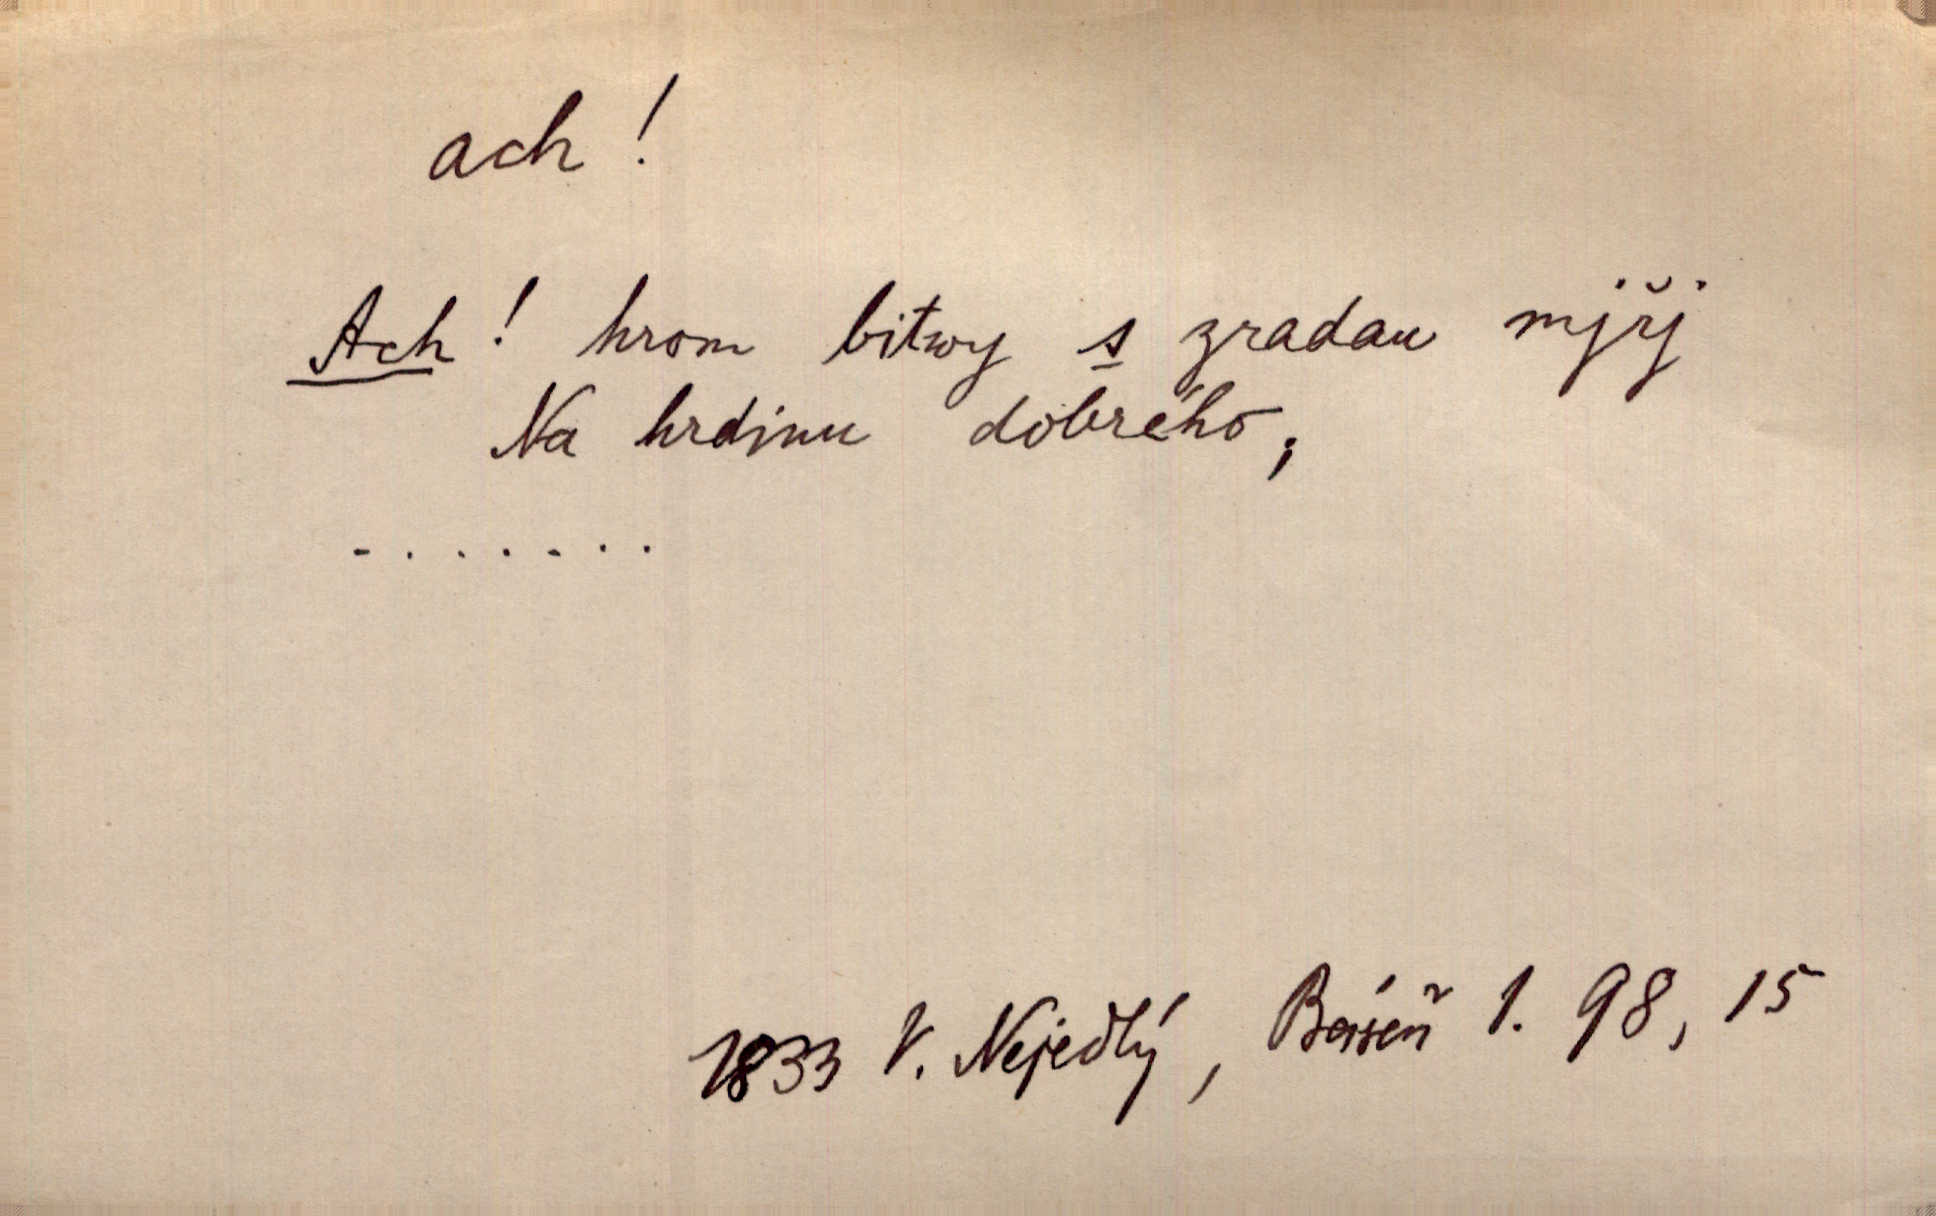 ach!
Ach! hrom bitwy s zradau mjřj
Na hrdinu dobrého;
- . . . . . .
1833 V. Nejedlý, Báseň 1. 98, 15